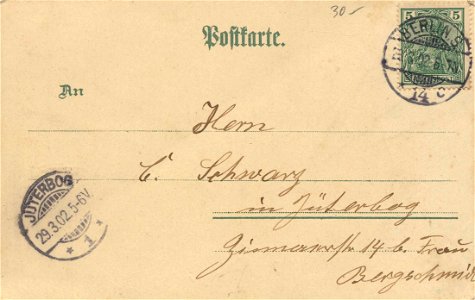 30-
Postkarte.
5 5
BERLIN S
14 c
An
Herrn
C. Schwarz
in Jüterbog
14 b. Frau
Bergschmidt
JÜTERBOG
29.3.02.5-6V
* 1 *